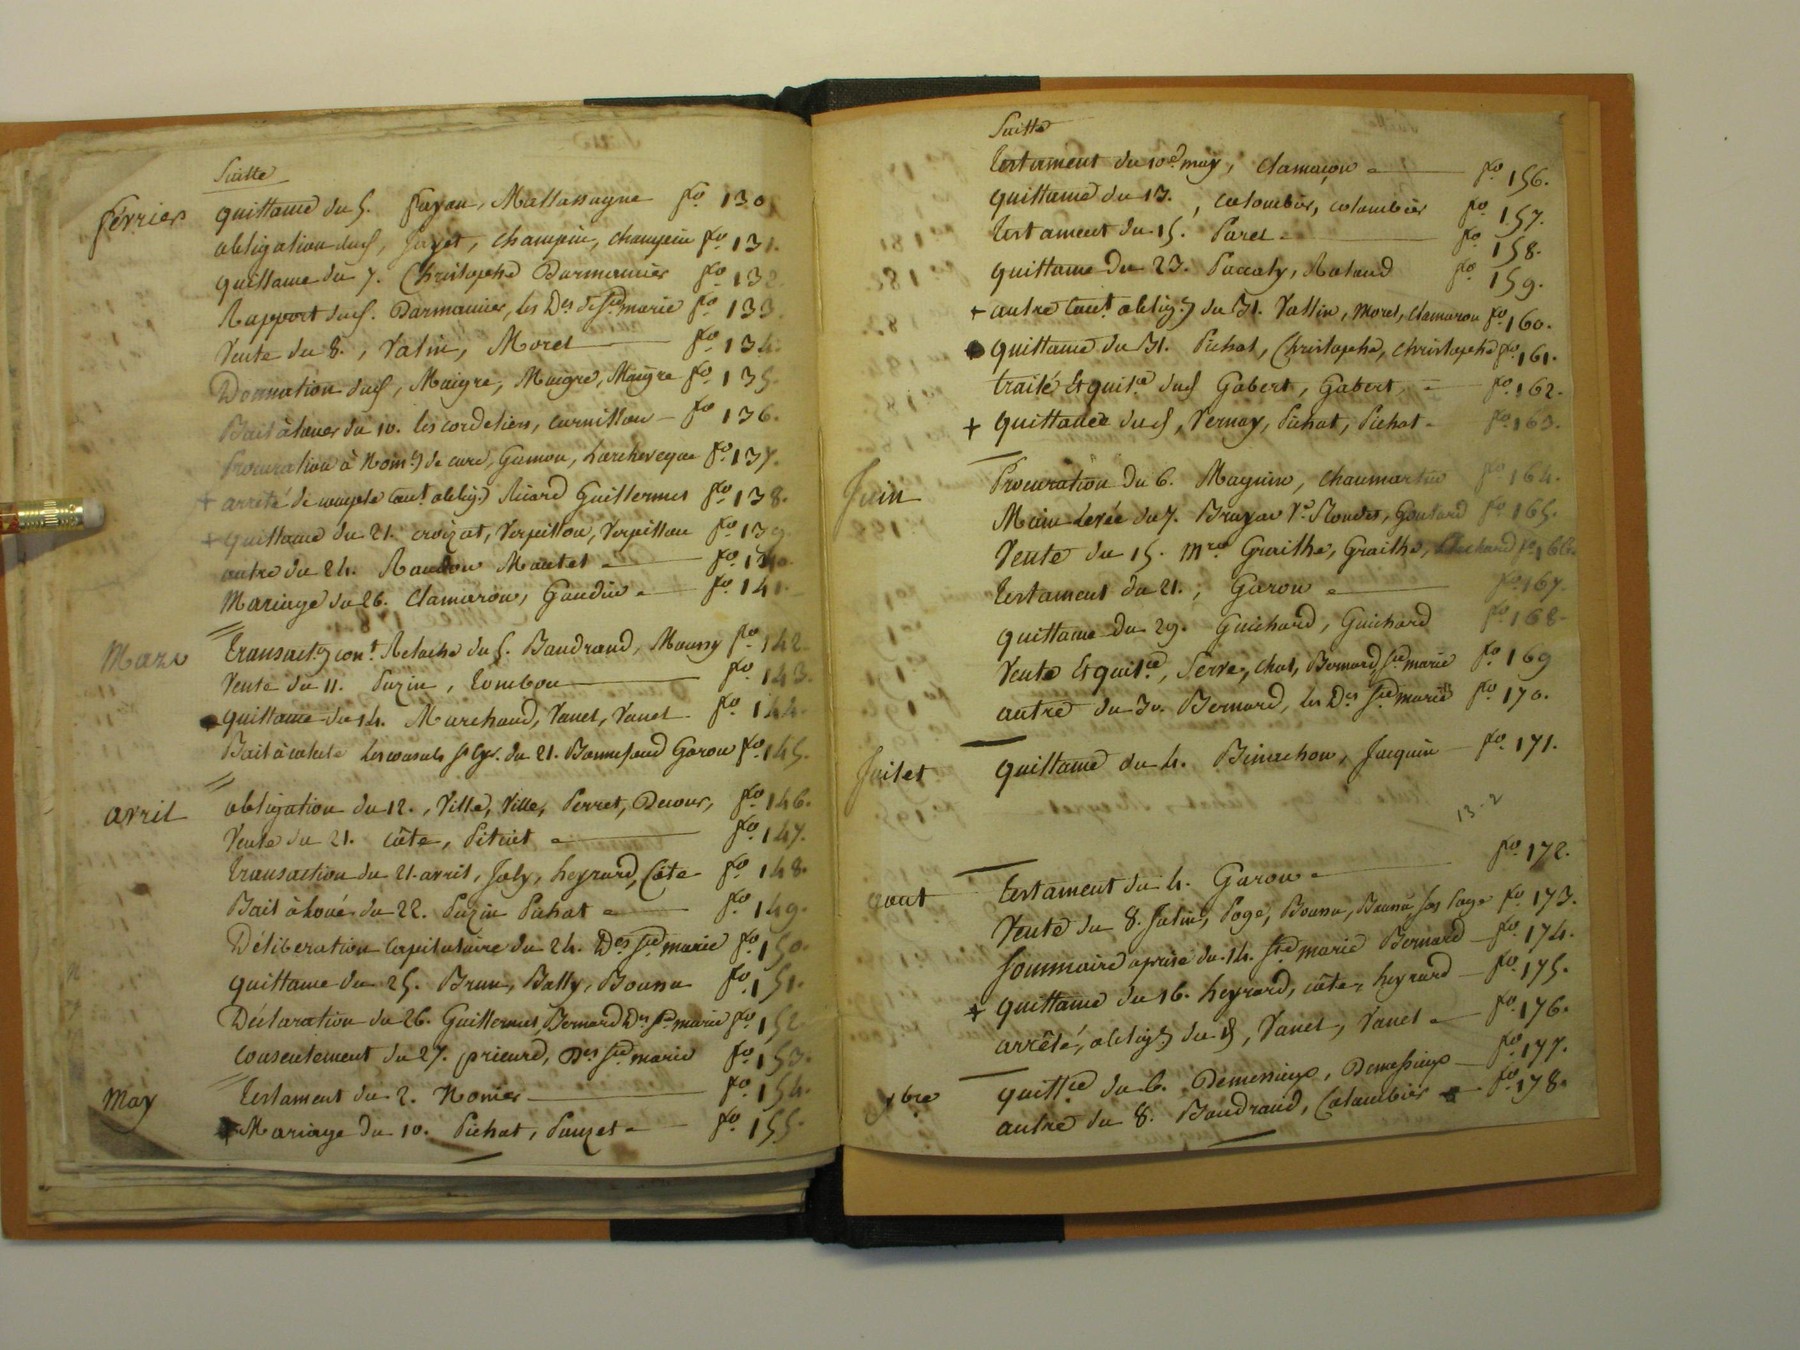 Suitte
février quittance du 5. fayan, Mattassagne fo 130
obligation dud, Jayet, champin, champin fo 131.
quittance du 7. Christophe Darmancier fo 132
Rapport dud. Darmancier, les Des de ste marie fo 133.
Vente du 8., Vatin, Moret fo 134.
Donnation dud, Maigre, Maigre, Maigre fo 135
Bail à louer du 10. les cordeliers, cornillon fo 136.
procuration à Nom.on de cure, Gamon, Larcheveque fo 137.
+ arrêté de compte cont oblig.on Ricard Guillermet fo 138.
+ quittance du 21. croizat, Verpillon, Verpillon fo 139
autre du 24. Mantet fo 140.
Mariage du 26. Clamaron, Gaudin fo 141.
Mars transact.on cont Relache du 5. Baudrand, Moussy fo 142
Vente du 11. Puzin, Tombou fo 143.
quittance du 14. Marchand, Vanet, Vanet fo 144
Bail à du 21. Bonnefond Garon fo 145.
avril obligation du 12., Ville, Ville, Perret, Decour, fo 146.
Vente du 21. côte, Petrict fo 147.
transaction du 21. avril, Joly, heyrard, Côte fo 148.
Bail à Loué du 22. Puzin Pichat fo 149.
Déliberation Capitulaire du 24. Des ste marie fo 150.
quittance du 25. Brun, Bally, Bonna fo 151.
Déclaration du 26. Guillermet, Bernard Des ste marie fo 152
Consentement du 27. prieure, Des ste marie fo 153.
May testament du 2. Nomier fo 154.
+ Mariage du 10. Pichat, Pauzet fo 155.
Suitte
testament du 10e may, Clamaron fo 156.
quittance du 13., colombier, colombier fo 157.
testament du 15. Paret fo 158.
quittance du 23. Paccaly, Roland fo 159.
+ autre cont oblig.on du 31. Vallin, Moret, Clamaron fo 160.
quittance du 31. Pichat, Christophe, Christophe fo 161.
traité Et quit.ce dud Gabert, Gabert, fo 162.
+ quittance dud, Vernay, Pichat, Pichat fo 163.
Juin Procuration du 6. Magnin, Chaumartin fo 164.
Main Levée du 7. Bruyas Ve Goutard fo 165.
Vente du 15. mre Graithe, Graithe, fo 166.
testament du 21., Garon fo 167.
quittance du 29. Guichard, Guichard fo 168
Vente Et quit.ce, Serve, chol, Bernard, ste marie fo 169
autre du 30. Bernard, les Des ste marie fo 170.
Juillet quittance du 4. Binachon, Jacquin fo 171.
13-2
aout testament du 4. Garon fo 172.
Vente du 8. Jatin, Poge, Bonna, Bonna, fo 173.
Sommaire aprise du 14. ste marie Bernard fo 174.
+ quittance du 16. heyrard, côte, heyrard fo 175.
arrêté, oblig.on du d, Vanet, Vanet fo 176.
quitt.ce du 6. Demessieux, Demessieux fo 177.
autre du 8. Baudrand, Colombier fo 178.